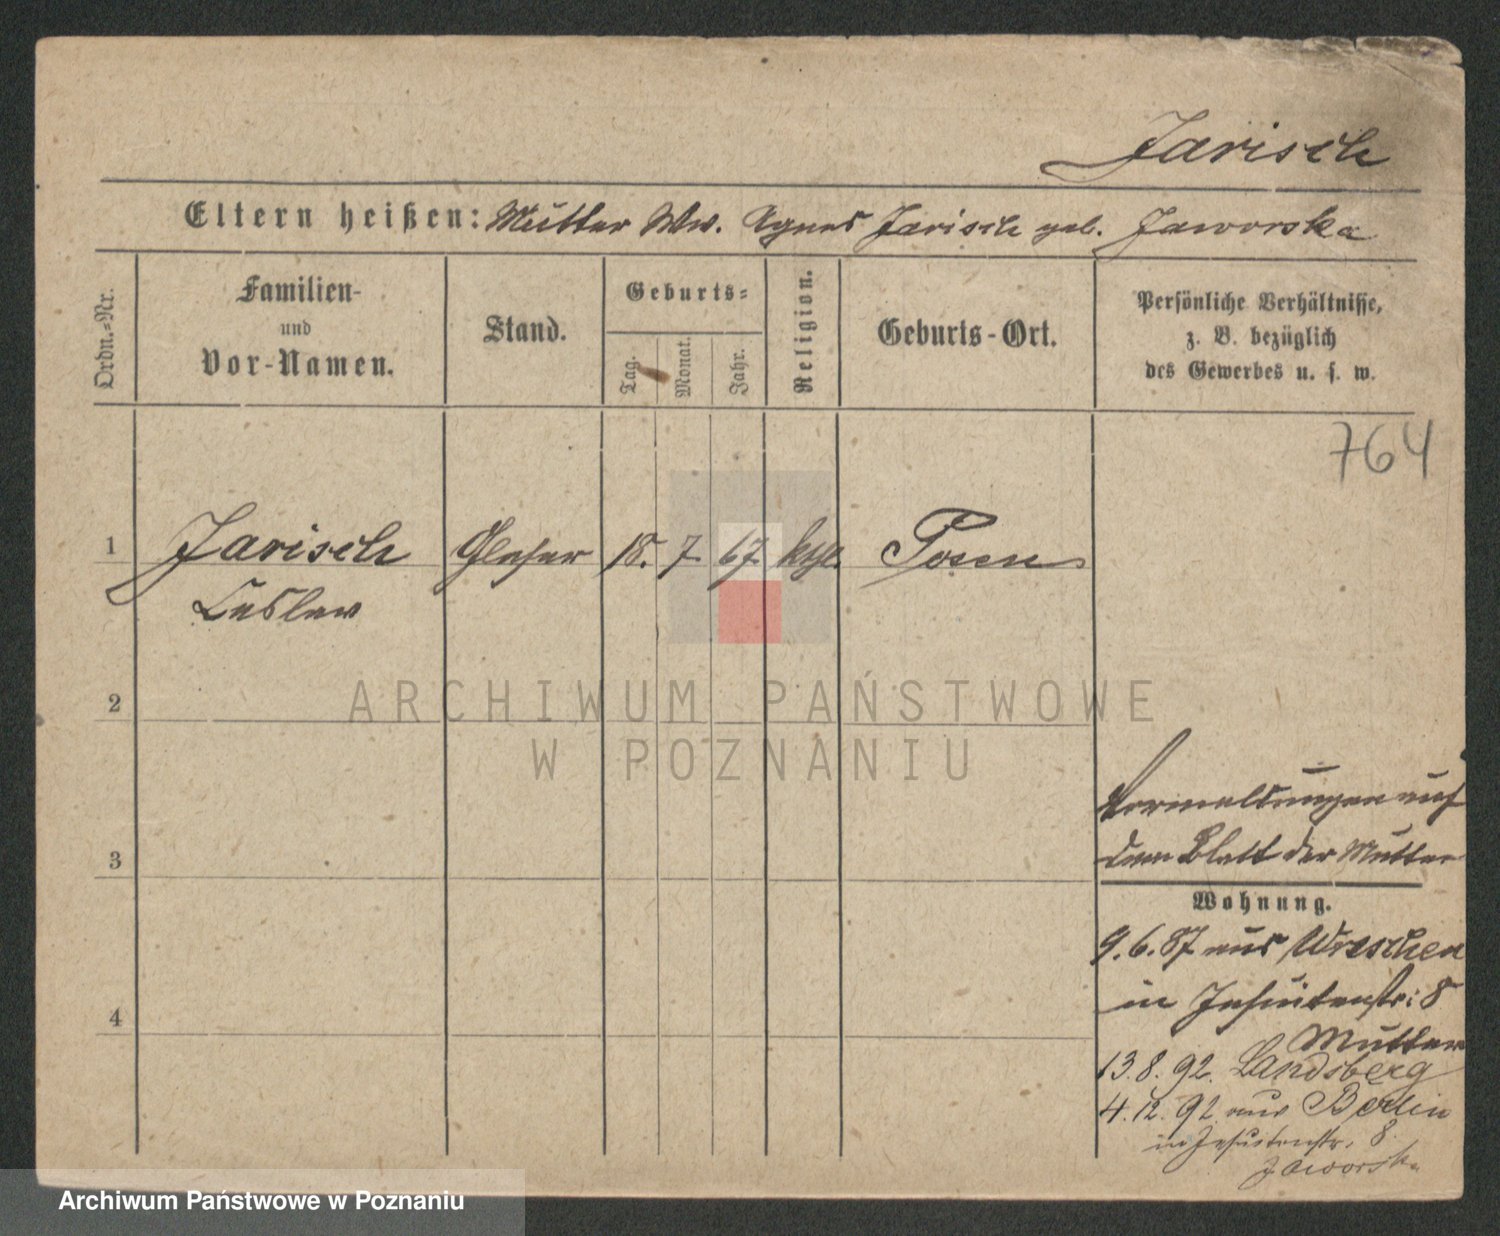 Jarisch
Eltern heißen: Mutter Ww. Agnes Jarisch geb. Jaworska
Ordn.=Nr.
Familien-
und
Vor-Namen.
Stand.
Geburts=
Tag.
Monat.
Jahr.
Religion.
Geburts-Ort.
Persönliche Verhältnisse,
z. B. bezüglich
des Gewerbes u. s. w.
764
1 Jarisch Glaser 18. 7. 67 kthl. Posen
Ceslaw
2
ARCHIWUM PAŃSTWOWE
W POZNANIU
Vormeldungen auf
3 dem Blatt der Mutter
Wohnung.
9.6.87 aus Wreschen
in Jesuitenstr: 8
4 Mutter
13.8.92. Landsberg
4.12.92 aus Berlin
in Jesuitenstr. 8.
Jaworska
Archiwum Państwowe w Poznaniu